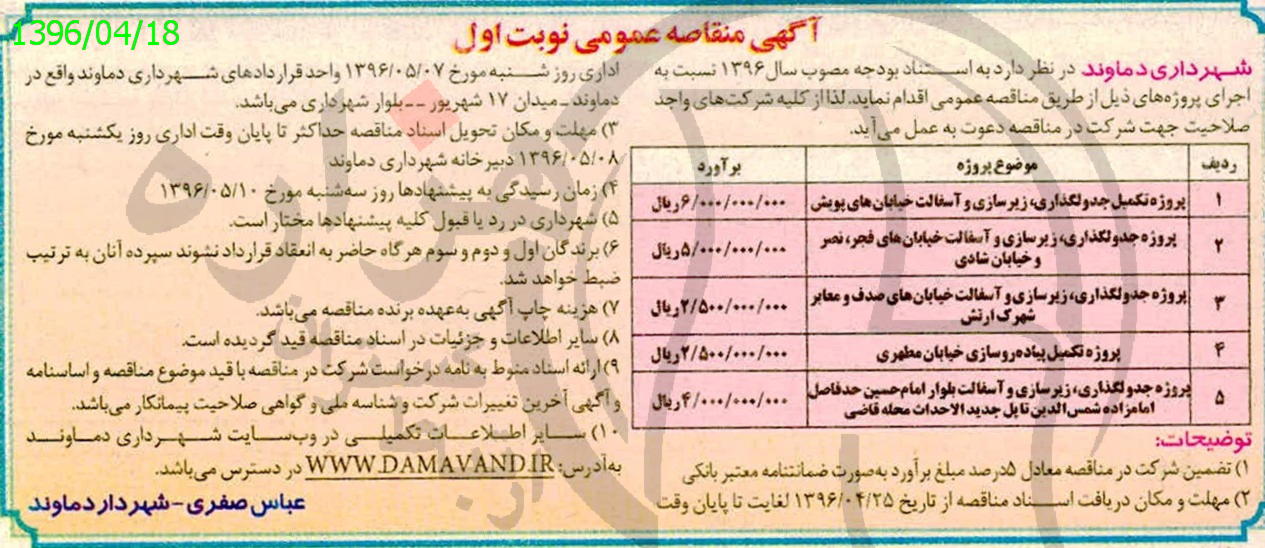 1396/04/18
آگهی مناقصه عمومی نوبت اول
شهرداری دماوند در نظر دارد به استناد بودجه مصوب سال ۱۳۹۶ نسبت به
اجرای پروژه‌های ذیل از طریق مناقصه عمومی اقدام نماید. لذا از کلیه شرکت‌های واجد
صلاحیت جهت شرکت در مناقصه دعوت به عمل می‌آید.
ردیف موضوع پروژه برآورد
۱ پروژه تکمیل جدولگذاری، زیرسازی و آسفالت خیابان‌های پویش ۶/۰۰۰/۰۰۰/۰۰۰ ریال
۲ پروژه جدولگذاری، زیرسازی و آسفالت خیابان‌های فجر، نصر ۵/۰۰۰/۰۰۰/۰۰۰ ریال
و خیابان شادی
۳ پروژه جدولگذاری، زیرسازی و آسفالت خیابان‌های صدف و معابر ۲/۵۰۰/۰۰۰/۰۰۰ ریال
شهرک ارتش
۴ پروژه تکمیل پیاده‌روسازی خیابان مطهری ۲/۵۰۰/۰۰۰/۰۰۰ ریال
۵ پروژه جدولگذاری، زیرسازی و آسفالت بلوار امام حسین حدفاصل ۴/۰۰۰/۰۰۰/۰۰۰ ریال
امامزاده شمس‌الدین تا پل جدید الاحداث محله قاضی
توضیحات:
۱) تضمین شرکت در مناقصه معادل ۵درصد مبلغ برآورد به‌صورت ضمانتنامه معتبر بانکی
۲) مهلت و مکان دریافت اسناد مناقصه از تاریخ ۱۳۹۶/۰۴/۲۵ لغایت تا پایان وقت
اداری روز شنبه مورخ ۱۳۹۶/۰۵/۰۷ واحد قراردادهای شهرداری دماوند واقع در
دماوند ـ میدان ۱۷ شهریور ــ بلوار شهرداری می‌باشد.
۳) مهلت و مکان تحویل اسناد مناقصه حداکثر تا پایان وقت اداری روز یکشنبه مورخ
۱۳۹۶/۰۵/۰۸ دبیرخانه شهرداری دماوند
۴) زمان رسیدگی به پیشنهادها روز سه‌شنبه مورخ ۱۳۹۶/۰۵/۱۰
۵) شهرداری در رد یا قبول کلیه پیشنهادها مختار است.
۶) برندگان اول و دوم و سوم هرگاه حاضر به انعقاد قرارداد نشوند سپرده آنان به ترتیب
ضبط خواهد شد.
۷) هزینه چاپ آگهی به‌عهده برنده مناقصه می‌باشد.
۸) سایر اطلاعات و جزئیات در اسناد مناقصه قید گردیده است.
۹) ارائه اسناد منوط به نامه درخواست شرکت در مناقصه با قید موضوع مناقصه و اساسنامه
و آگهی آخرین تغییرات شرکت و شناسه ملی و گواهی صلاحیت پیمانکار می‌باشد.
۱۰) سایر اطلاعات تکمیلی در وب‌سایت شهرداری دماوند
به‌آدرس: WWW.DAMAVAND.IR در دسترس می‌باشد.
عباس صفری - شهردار دماوند